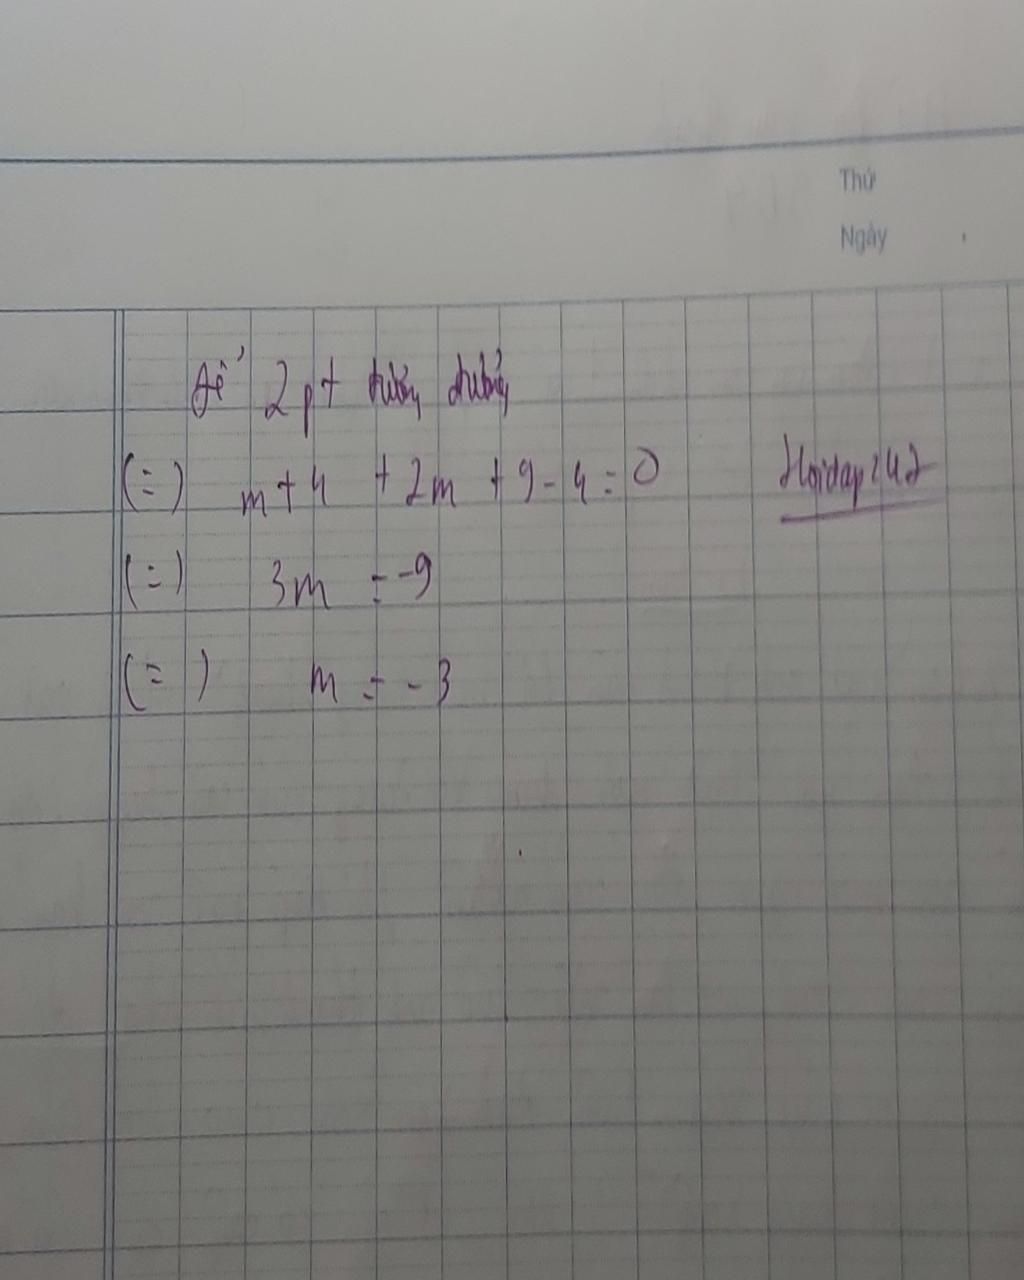 Thứ
Ngày
để 2 pt tương đương
(=) m + 4 + 2m + 9 - 4 = 0
Hoidap247
(=) 3m = -9
(=) m = -3